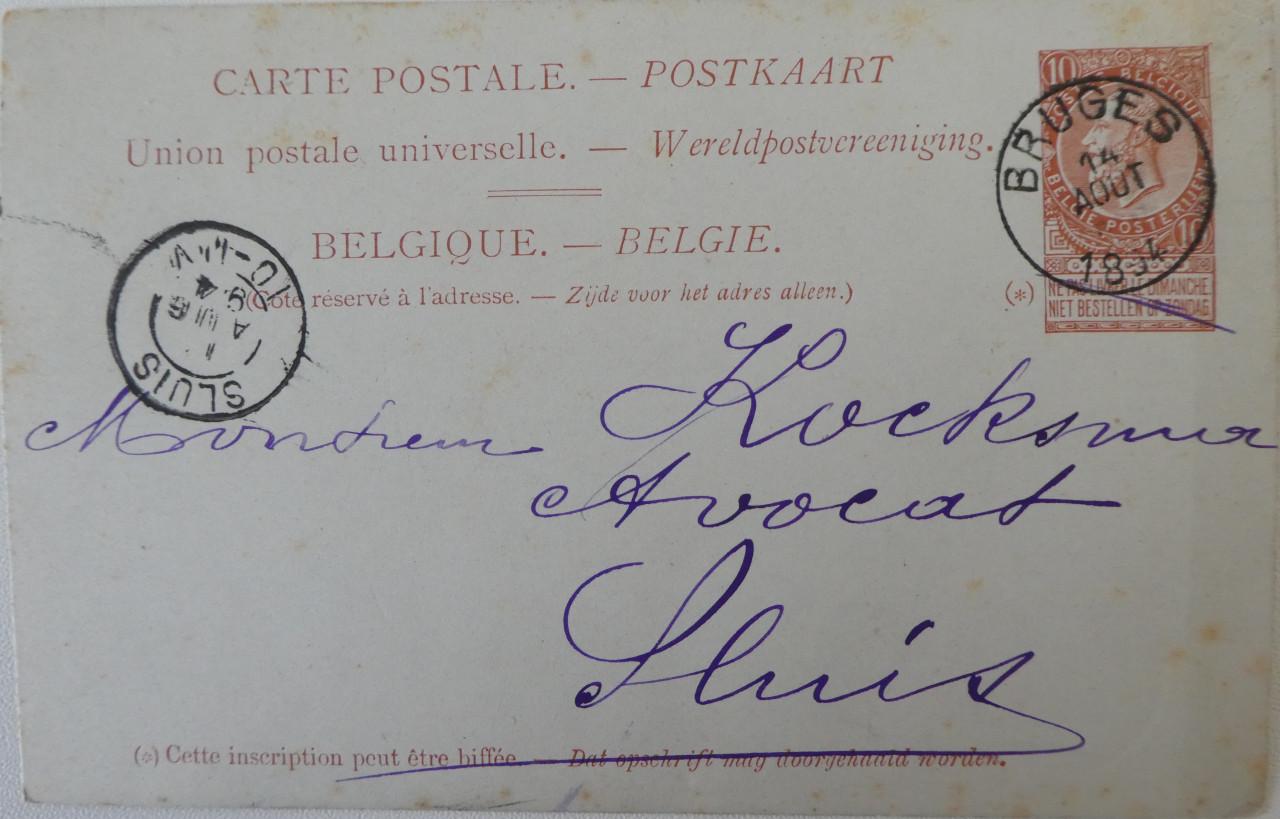 CARTE POSTALE. — POSTKAART
Union postale universelle. — Wereldpostvereeniging.
BELGIQUE. — BELGIE.
(Côté réservé à l'adresse. — Zijde voor het adres alleen.)
(*)
10 BELGIQUE
BELGIE POSTERIJEN 10
NE PAS LIVRER LE DIMANCHE
NIET BESTELLEN OP ZONDAG
BRUGES
14
AOUT
1894
SLUIS
AUG
94
Monsieur Kocksma
Avocat
Sluis
(*) Cette inscription peut être biffée. — Dat opschrift mag doorgehaald worden.